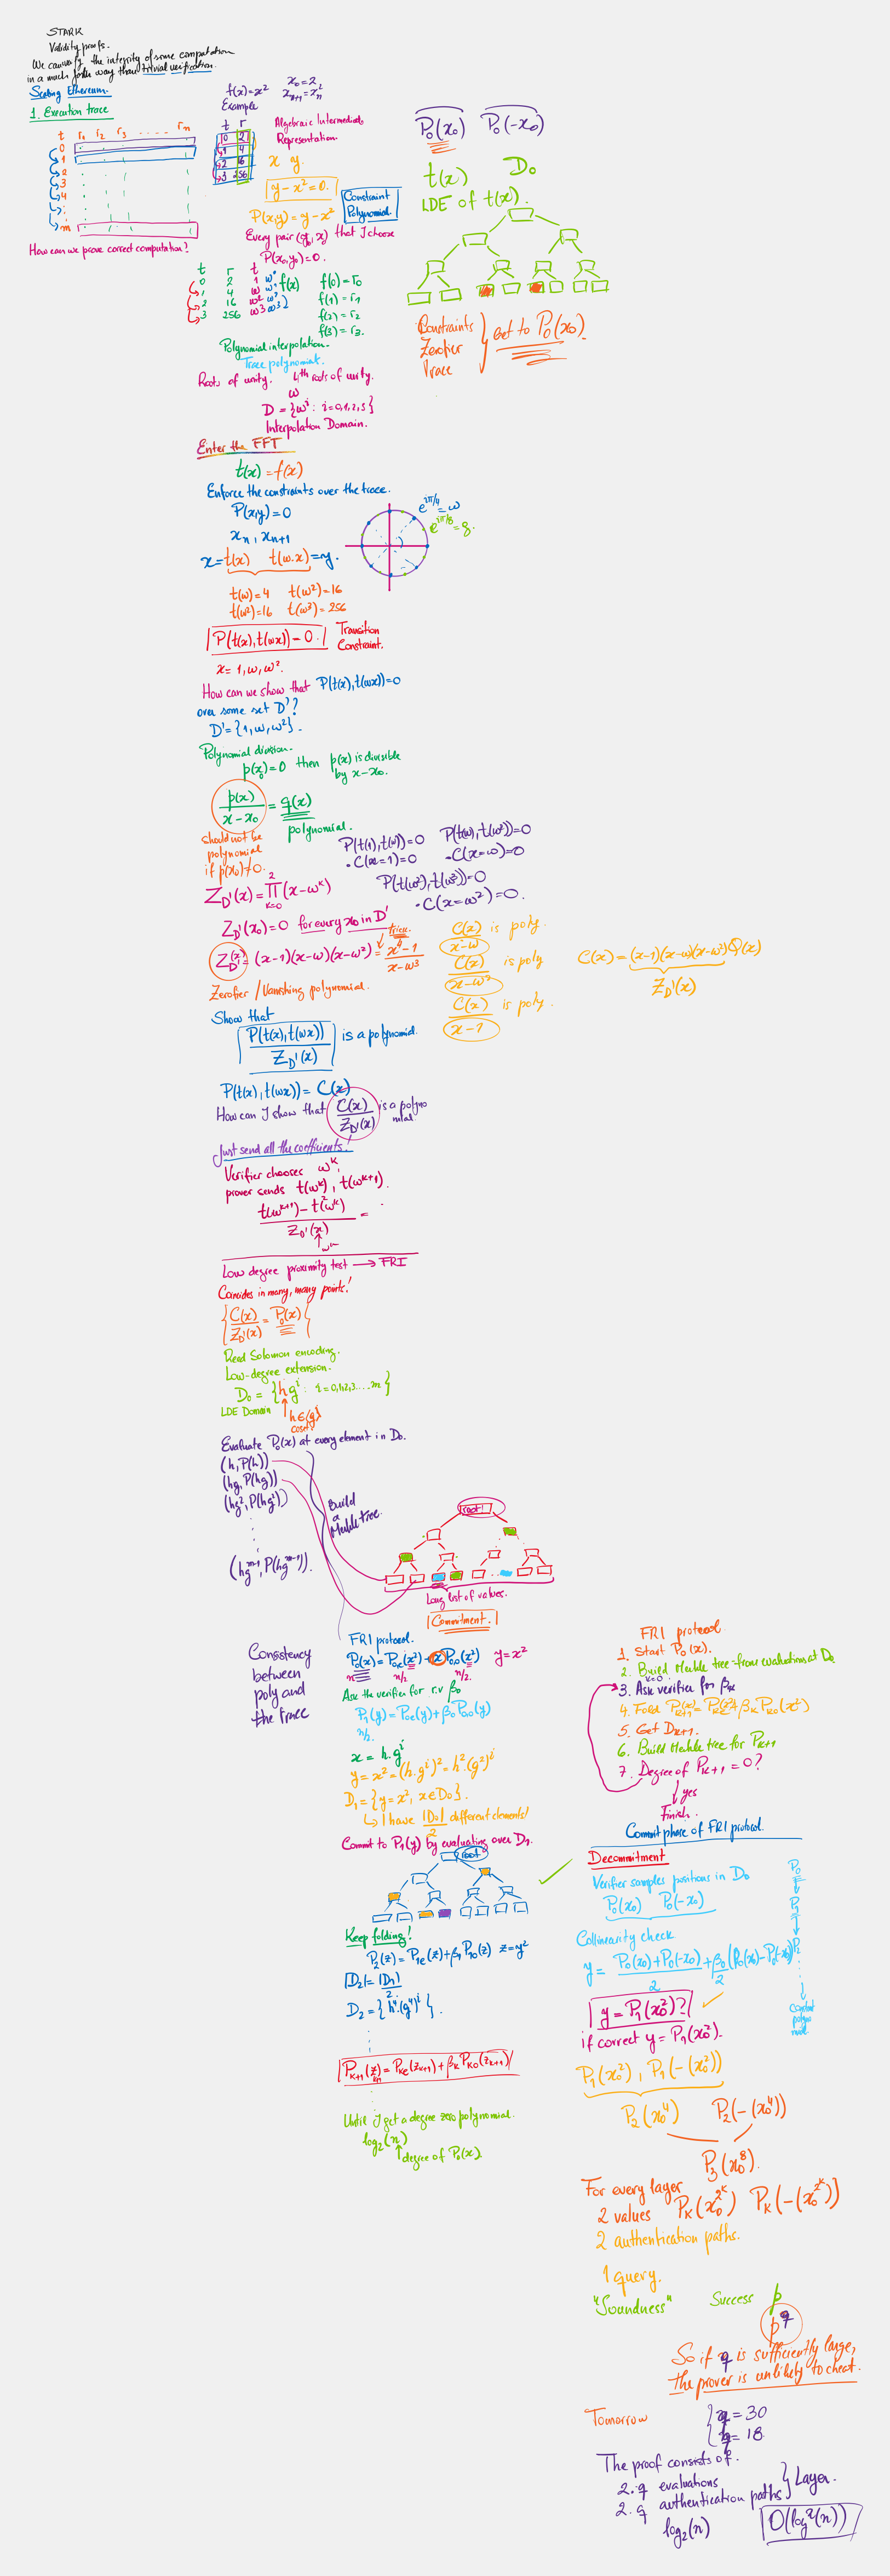 STARK
Validity proofs.
We can verify the integrity of some computation
in a much faster way than trivial verification.
Scaling Ethereum.
1. Execution trace
t r₁ r₂ r₃ ..... rₙ
0
1
2
3
4
:
:
m
How can we prove correct computation?
f(x)=x² x₀=2
Example xₙ₊₁=xₙ²
t r
0 2
1 4
2 16
3 256
Algebraic Intermediate
Representation.
x y
y-x²=0.
Constraint
Polynomial.
P(x,y)=y-x²
Every pair (y₀,x₀) that I choose
P(x₀,y₀)=0.
t r t
0 2 1 w⁰ f(x) f(0)=r₀
1 4 w w¹ f(1)=r₁
2 16 w² w² f(2)=r₂
3 256 w³ w³ f(3)=r₃.
Polynomial interpolation.
Trace polynomial.
Roots of unity. 4th roots of unity.
w
D={wⁱ: i=0,1,2,3}
Interpolation Domain.
P₀(x₀) P₀(-x₀)
t(x) D₀
LDE of t(x).
Constraints
Zerofier
Trace
Get to P₀(x₀)
Enter the FFT
t(x)=f(x)
Enforce the constraints over the trace.
P(x,y)=0
xₙ, xₙ₊₁
x=t(x) t(w.x)=y.
e^(iπ/4)=w
e^(iπ/8)=g.
t(w)=4 t(w²)=16
t(w²)=16 t(w³)=256
P(t(x),t(wx))=0. Transition
Constraint.
x=1,w,w².
How can we show that P(t(x),t(wx))=0
over some set D'?
D'={1,w,w²}.
Polynomial division.
p(x₀)=0 then p(x) is divisible
by x-x₀.
p(x)/(x-x₀) = q(x)
polynomial.
should not be
polynomial
if p(x₀)≠0.
P(t(1),t(w))=0 P(t(w),t(w²))=0
·C(x=1)=0 ·C(x=w)=0
P(t(w²),t(w³))=0
·C(x=w²)=0.
Z_D'(x)=∏_{k=0}^{2}(x-wᵏ)
Z_D'(x₀)=0 for every x₀ in D'
Z_D'(x)=(x-1)(x-w)(x-w²)=(x⁴-1)/(x-w³)
Zerofier / Vanishing polynomial.
C(x)/(x-w) is poly.
C(x)/(x-w²) is poly
C(x)/(x-1) is poly.
C(x)=(x-1)(x-w)(x-w²)Q(x)
Z_D'(x)
Show that
P(t(x),t(wx))/Z_D'(x) is a polynomial.
P(t(x),t(wx))=C(x)
How can I show that C(x)/Z_D'(x) is a polyno
mial.
Just send all the coefficients!
Verifier chooses wᵏ,
prover sends t(wᵏ), t(wᵏ⁺¹).
(t(wᵏ⁺¹)-t²(wᵏ))/Z_D'(x) =
wᵏ
Low degree proximity test → FRI
Coincides in many, many points!
C(x)/Z_D'(x) = P₀(x)
Reed Solomon encoding.
Low-degree extension.
D₀={h gⁱ: i=0,1,2,3....m}
LDE Domain
h∉{gⁱ}
coset
Evaluate P₀(x) at every element in D₀.
(h,P(h))
(hg,P(hg))
(hg²,P(hg²))
(hgᵐ⁻¹,P(hgᵐ⁻¹)).
Build
a
Merkle tree.
root!
Long list of values.
Commitment.
Consistency
between
poly and
the trace
FRI protocol.
P₀(x)=P₀ₑ(x²)+xP₀₀(x²) y=x²
n n/2 n/2.
Ask the verifier for r.v β₀
P₁(y)=P₀ₑ(y)+β₀P₀₀(y)
n/2.
x=h.gⁱ
y=x²=(h.gⁱ)²=h²(g²)ⁱ
D₁={y=x², x∈D₀}.
↳ I have |D₀|/2 different elements!
Commit to P₁(y) by evaluating over D₁.
root
Keep folding!
P₂(z)=P₁ₑ(z)+β₁P₁₀(z) z=y²
|D₂|=|D₁|/2
D₂={h⁴.(g⁴)ⁱ}.
Pₖ₊₁(z)=Pₖₑ(zₖ₊₁)+βₖPₖ₀(zₖ₊₁)
Until I get a degree zero polynomial.
log₂(n)
degree of P₀(x)
FRI protocol.
1. Start P₀(x).
2. Build Merkle tree from evaluation at D₀
k=0
3. Ask verifier for βₖ
4. Fold Pₖ₊₁(x²)=Pₖₑ(x²)+βₖPₖ₀(x²)
5. Get Dₖ₊₁.
6. Build Merkle tree for Pₖ₊₁
7. Degree of Pₖ₊₁=0?
yes
Finish.
Commit phase of FRI protocol.
Decommitment
Verifier samples positions in D₀
P₀(x₀) P₀(-x₀)
Collinearity check
y=(P₀(x₀)+P₀(-x₀))/2+β₀/2(P₀(x₀)-P₀(-x₀))
P₀
P₁
P₂
y=P₁(x₀²)?
if correct y=P₁(x₀²).
P₁(x₀²), P₁(-(x₀²))
P₂(x₀⁴) P₂(-(x₀⁴))
P₃(x₀⁸).
For every layer
2 values Pₖ(x₀^2ᵏ) Pₖ(-(x₀^2ᵏ))
2 authentication paths.
1 query.
"Soundness" Success p
p^q
So if q is sufficiently large,
the prover is unlikely to cheat.
Tomorrow
q=30
q=18
The proof consists of.
2.q evaluations
2.q authentication paths
Layer.
log₂(n) O(log²(n))